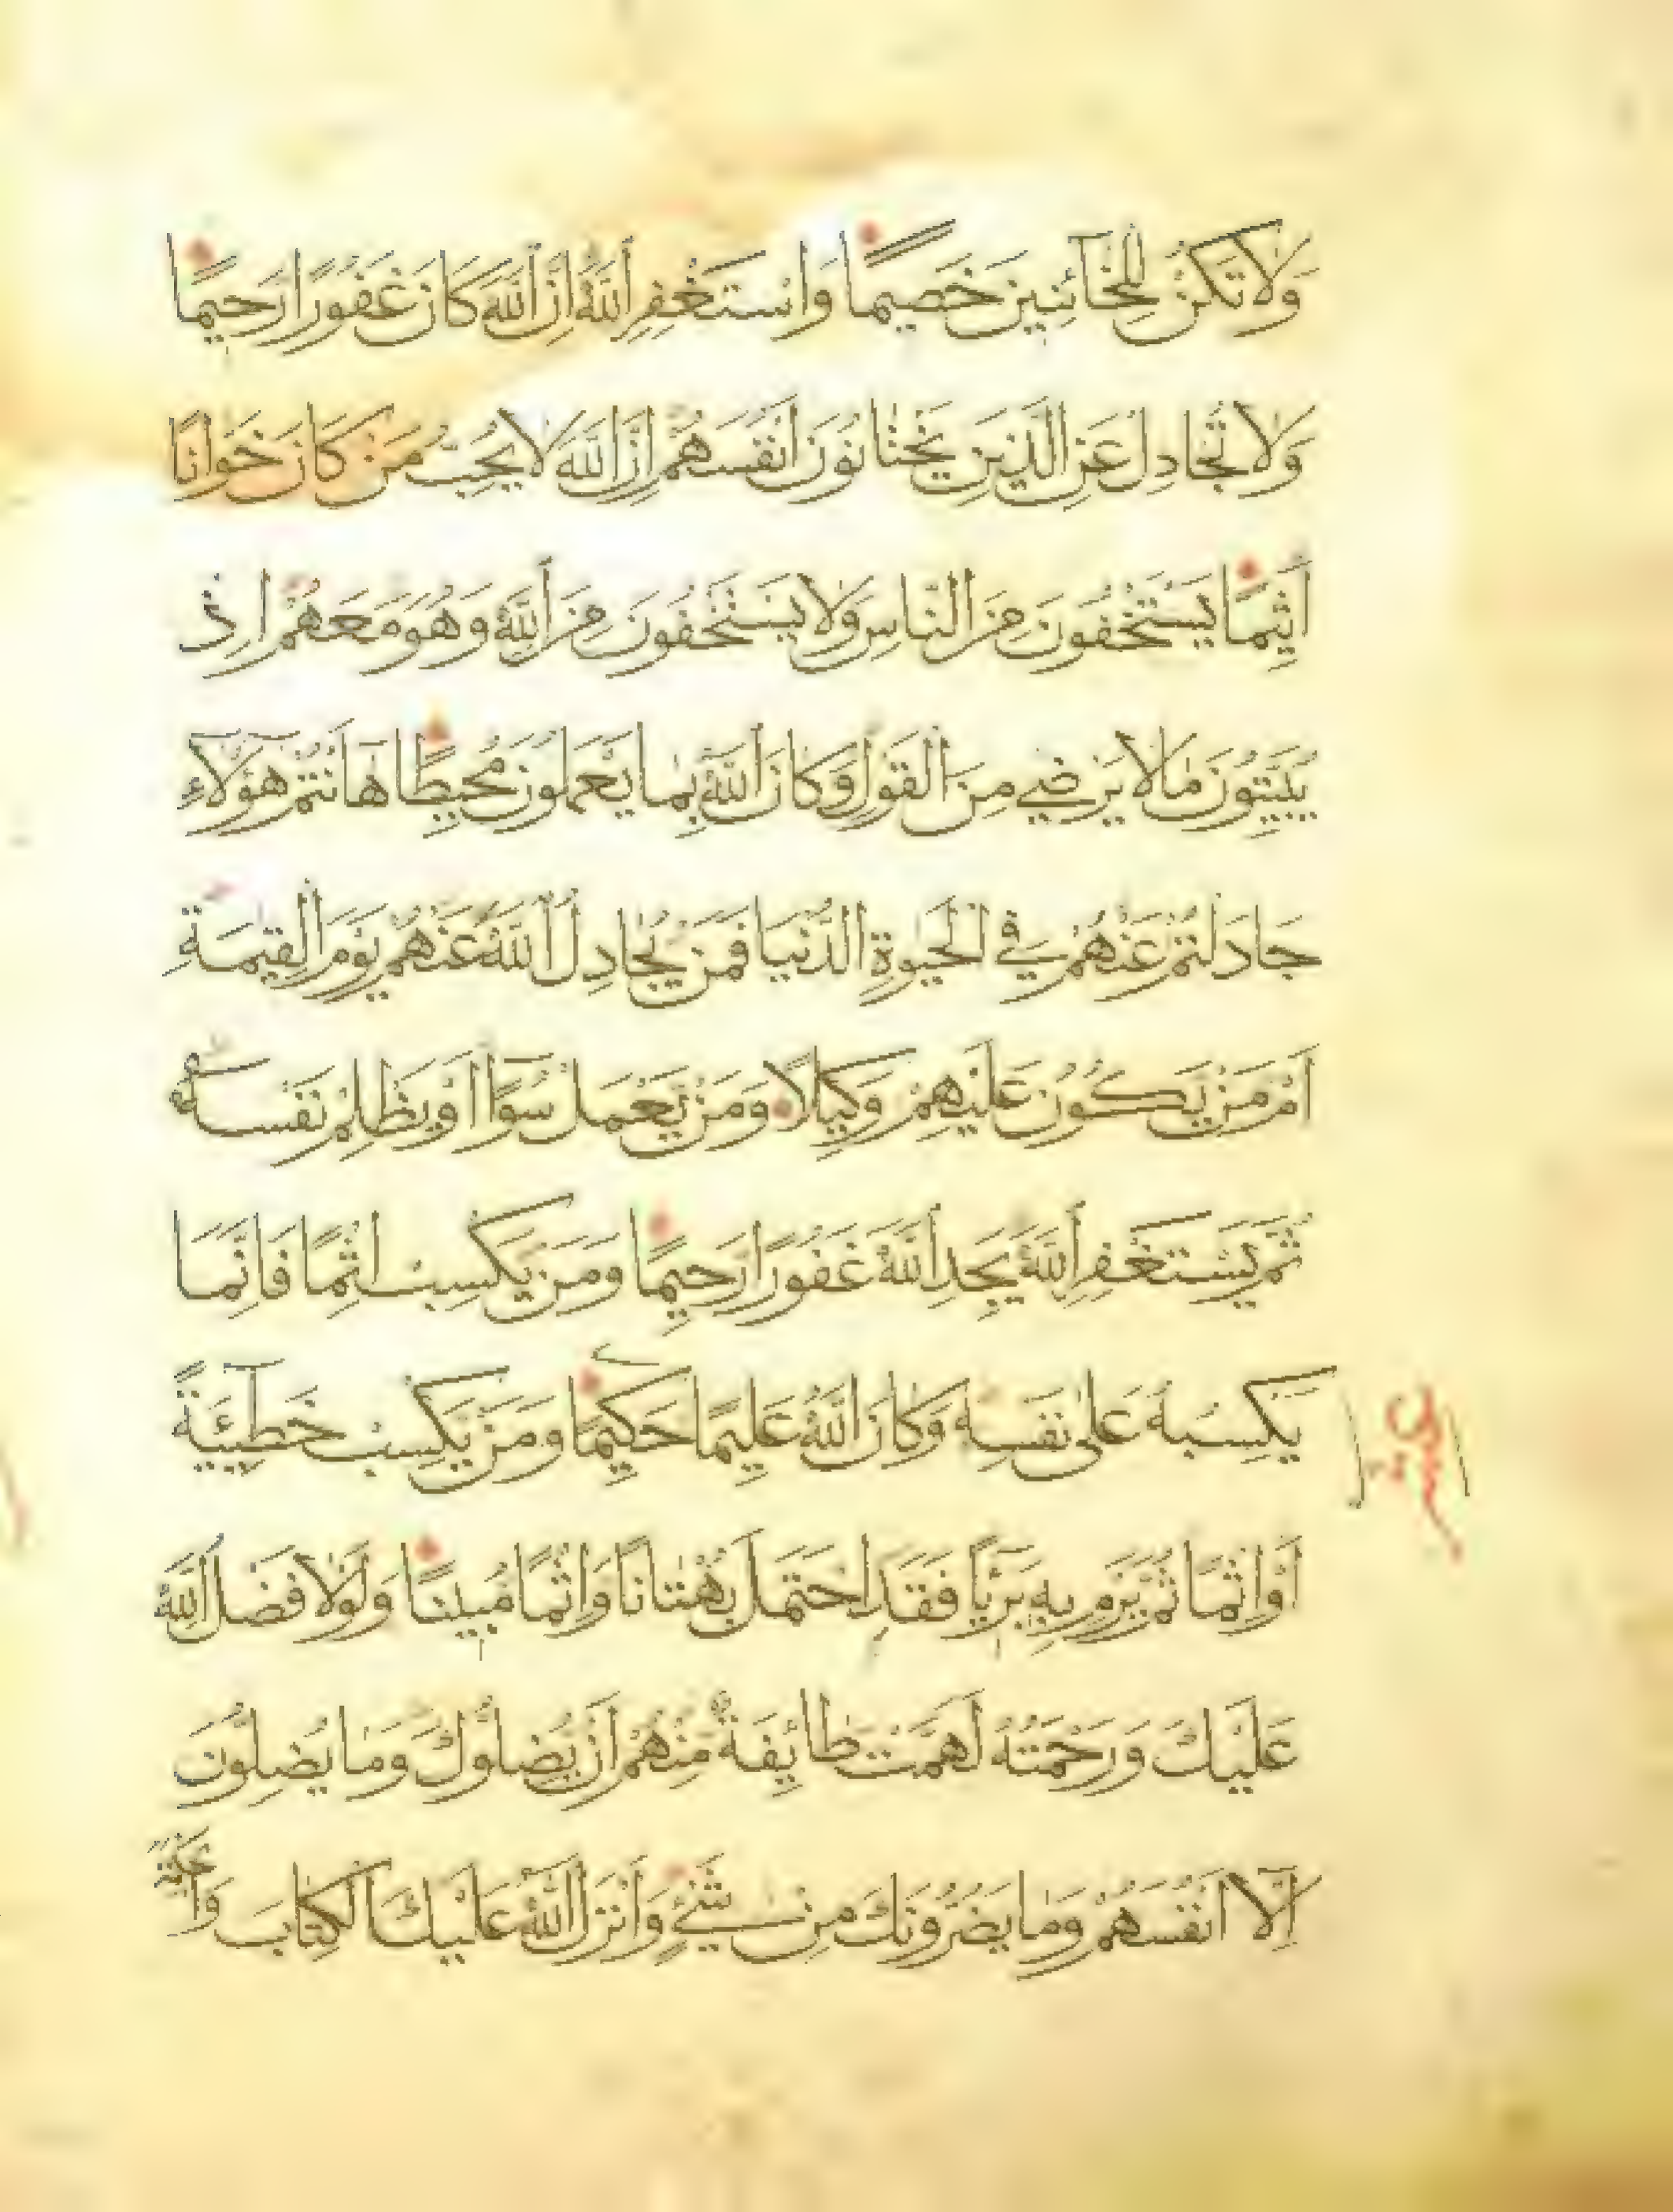 وَلَا تَكُنْ لِلْخَآئِنِينَ خَصِيمًا وَاسْتَغْفِرِ اللّٰهَ اِنَّ اللّٰهَ كَانَ غَفُورًا رَحِيمًا
وَلَا تُجَادِلْ عَنِ الَّذِينَ يَخْتَانُونَ اَنْفُسَهُمْ اِنَّ اللّٰهَ لَا يُحِبُّ مَنْ كَانَ خَوَّانًا
اَثِيمًا يَسْتَخْفُونَ مِنَ النَّاسِ وَلَا يَسْتَخْفُونَ مِنَ اللّٰهِ وَهُوَ مَعَهُمْ اِذْ
يُبَيِّتُونَ مَا لَا يَرْضٰى مِنَ الْقَوْلِ وَكَانَ اللّٰهُ بِمَا يَعْمَلُونَ مُحِيطًا هَا اَنْتُمْ هٰؤُلَآءِ
جَادَلْتُمْ عَنْهُمْ فِي الْحَيٰوةِ الدُّنْيَا فَمَنْ يُجَادِلُ اللّٰهَ عَنْهُمْ يَوْمَ الْقِيٰمَةِ
اَمْ مَنْ يَكُونُ عَلَيْهِمْ وَكِيلًا وَمَنْ يَعْمَلْ سُوٓءًا اَوْ يَظْلِمْ نَفْسَهُ
ثُمَّ يَسْتَغْفِرِ اللّٰهَ يَجِدِ اللّٰهَ غَفُورًا رَحِيمًا وَمَنْ يَكْسِبْ اِثْمًا فَاِنَّمَا
يَكْسِبُهُ عَلٰى نَفْسِهِ وَكَانَ اللّٰهُ عَلِيمًا حَكِيمًا وَمَنْ يَكْسِبْ خَطِٓيئَةً
اَوْ اِثْمًا ثُمَّ يَرْمِ بِهِ بَرِيٓـًٔا فَقَدِ احْتَمَلَ بُهْتَانًا وَاِثْمًا مُبِينًا وَلَوْلَا فَضْلُ اللّٰهِ
عَلَيْكَ وَرَحْمَتُهُ لَهَمَّتْ طَائِفَةٌ مِنْهُمْ اَنْ يُضِلُّوكَ وَمَا يُضِلُّونَ
اِلَّآ اَنْفُسَهُمْ وَمَا يَضُرُّونَكَ مِنْ شَيْءٍ وَاَنْزَلَ اللّٰهُ عَلَيْكَ الْكِتَابَ وَالْحِكْمَةَ